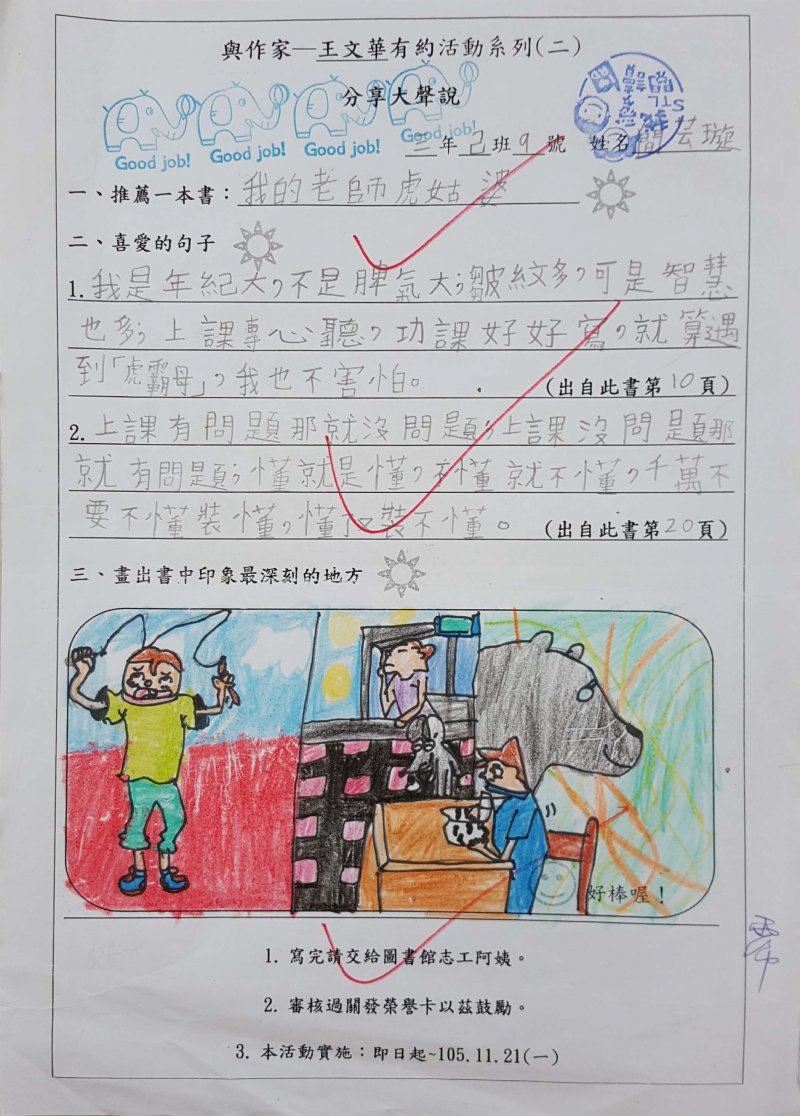 與作家─王文華有約活動系列(二)
分享大聲說
Good job! Good job! Good job! Good job!
三年2班9號 姓名簡芸璇
一、推薦一本書：我的老師虎姑婆
二、喜愛的句子
1.我是年紀大，不是脾氣大；皺紋多，可是智慧
也多；上課專心聽，功課好好寫，就算遇
到「虎霸母」，我也不害怕。 (出自此書第10頁)
2.上課有問題那就沒問題；上課沒問題那
就有問題；懂就是懂，不懂就不懂，千萬不
要不懂裝懂，懂了又裝不懂。 (出自此書第20頁)
三、畫出書中印象最深刻的地方
好棒喔！
1. 寫完請交給圖書館志工阿姨。
2. 審核過關發榮譽卡以茲鼓勵。
3. 本活動實施：即日起~105.11.21(一)